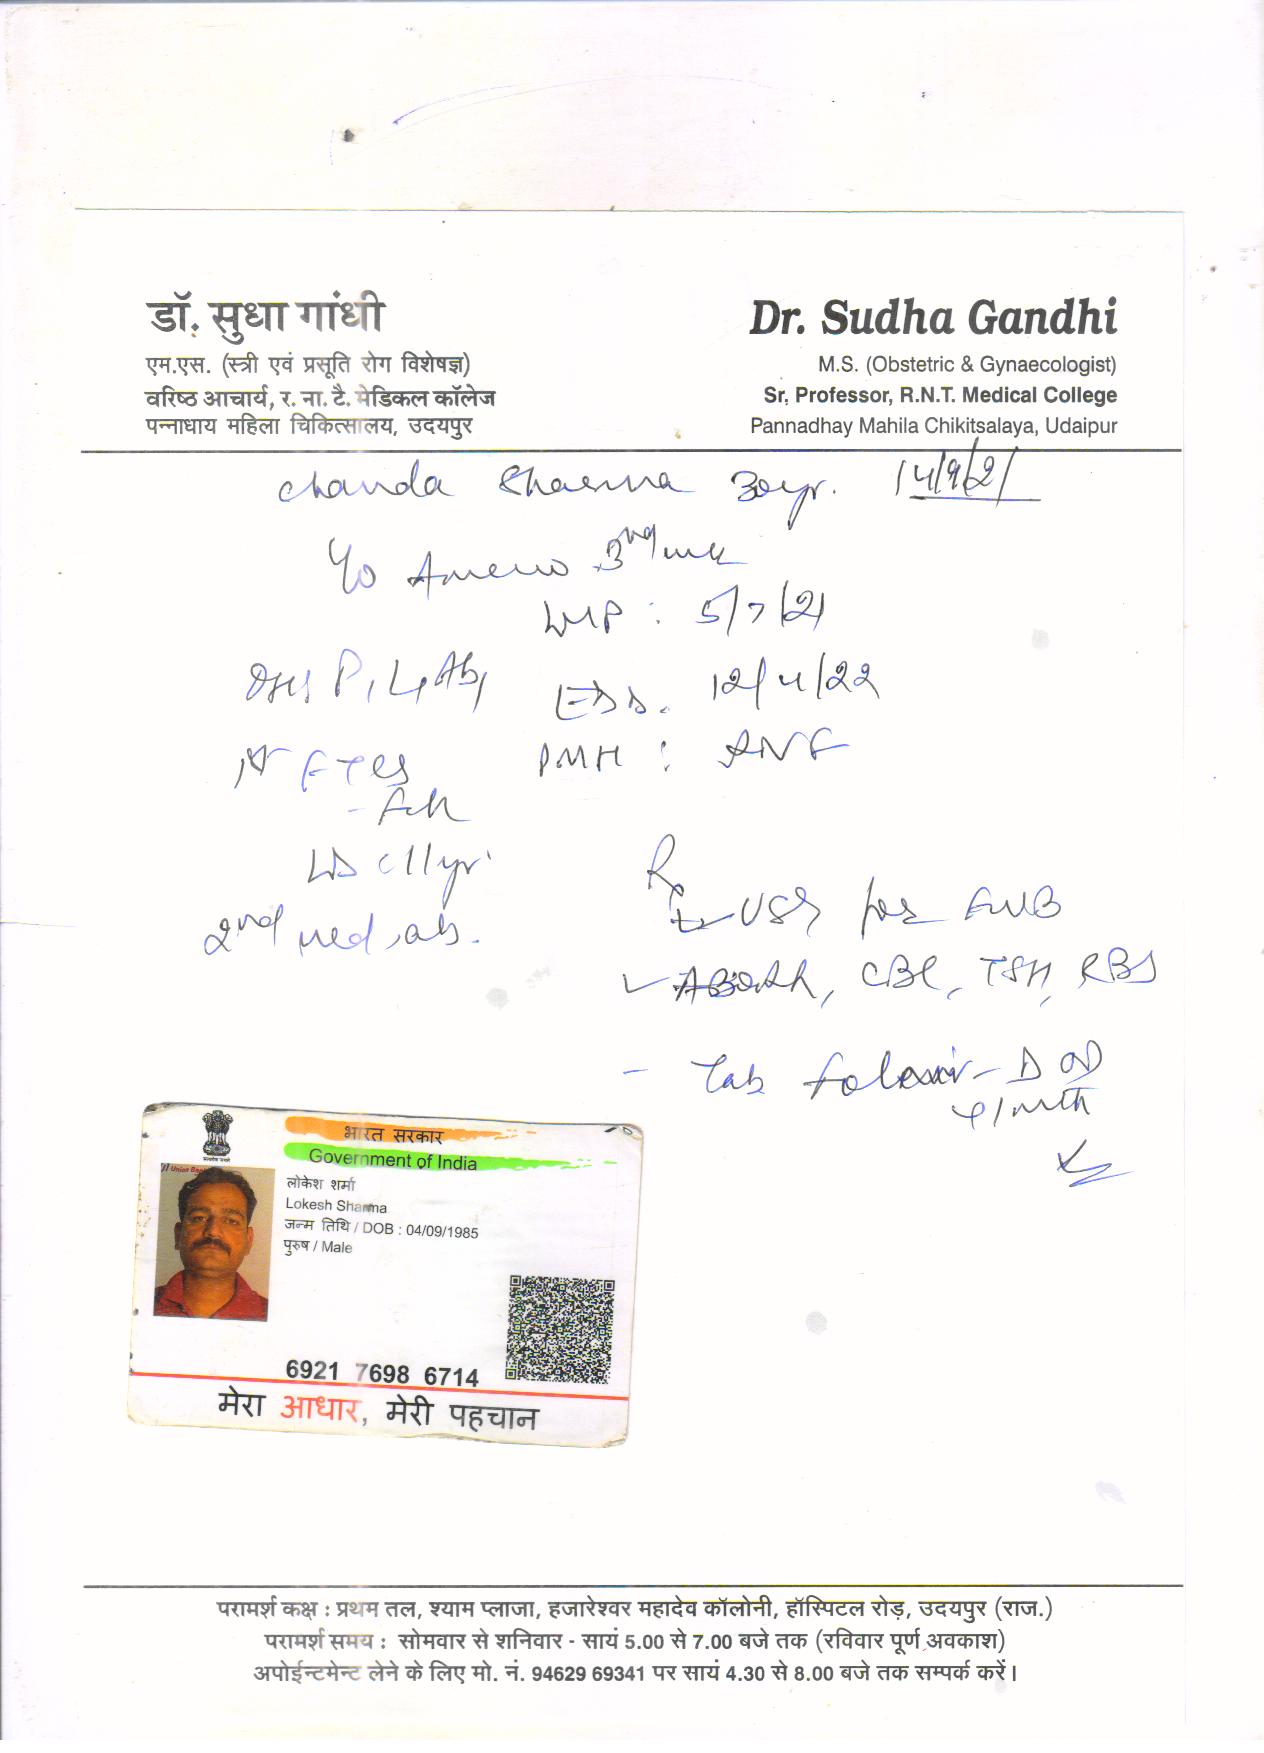 डॉ. सुधा गांधी
एम.एस. (स्त्री एवं प्रसूति रोग विशेषज्ञ)
वरिष्ठ आचार्य, र. ना. टै. मेडिकल कॉलेज
पन्नाधाय महिला चिकित्सालय, उदयपुर
Dr. Sudha Gandhi
M.S. (Obstetric & Gynaecologist)
Sr. Professor, R.N.T. Medical College
Pannadhay Mahila Chikitsalaya, Udaipur
Chanda Sharma 30yr. 14/9/21
3rd
LMP : 5/7/21
P1 L1 Ab1
EDD. 12/4/22
PMH :
LD 11yr.
2nd med ab.
Rx
USG for FWB
ABORh, CBC, TSH, RBS
- Tab OD
भारत सरकार
Government of India
Union Bank
लोकेश शर्मा
Lokesh Sharma
जन्म तिथि / DOB : 04/09/1985
पुरुष / Male
6921 7698 6714
मेरा आधार, मेरी पहचान
परामर्श कक्ष : प्रथम तल, श्याम प्लाजा, हजारेश्वर महादेव कॉलोनी, हॉस्पिटल रोड़, उदयपुर (राज.)
परामर्श समय : सोमवार से शनिवार - सायं 5.00 से 7.00 बजे तक (रविवार पूर्ण अवकाश)
अपोईन्टमेन्ट लेने के लिए मो. नं. 94629 69341 पर सायं 4.30 से 8.00 बजे तक सम्पर्क करें।